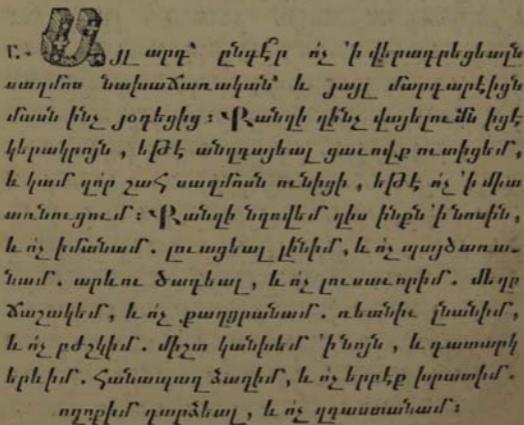 բ. Այլ արդ՝ ընդէր ոչ ՚ի վերադրեցեալն
սաղմոս նախաճառական՝ և յայլ մարգարէիցն
մասն ինչ յօդեցից։ Քանզի զինչ վայելումն իցէ
կերակրոյն, եթէ անզգայեալ ցաւովք ուտիցեմ,
և կամ զոր շահ սաղմոսն ունիցի, եթէ ոչ ՚ի միտ
առնուցում։ Քանզի նզովեմ զիս ինքն ՚ի նոսին,
և ոչ իմանամ. լուացեալ լինիմ, և ոչ պայծառա-
նամ. արևու ծագեալ, և ոչ լուսաւորիմ. մեղր
ճաշակեմ, և ոչ քաղցրանամ. ռետնիւ յնանիմ,
և ոչ բժշկիմ. միշտ կանխեմ ՚ի նոյն, և դատարկ
երևիմ. Հանապազ ձաղիմ, և ոչ երբէք խրատիմ.
ողոքիմ դարձեալ, և ոչ զգաստանամ։